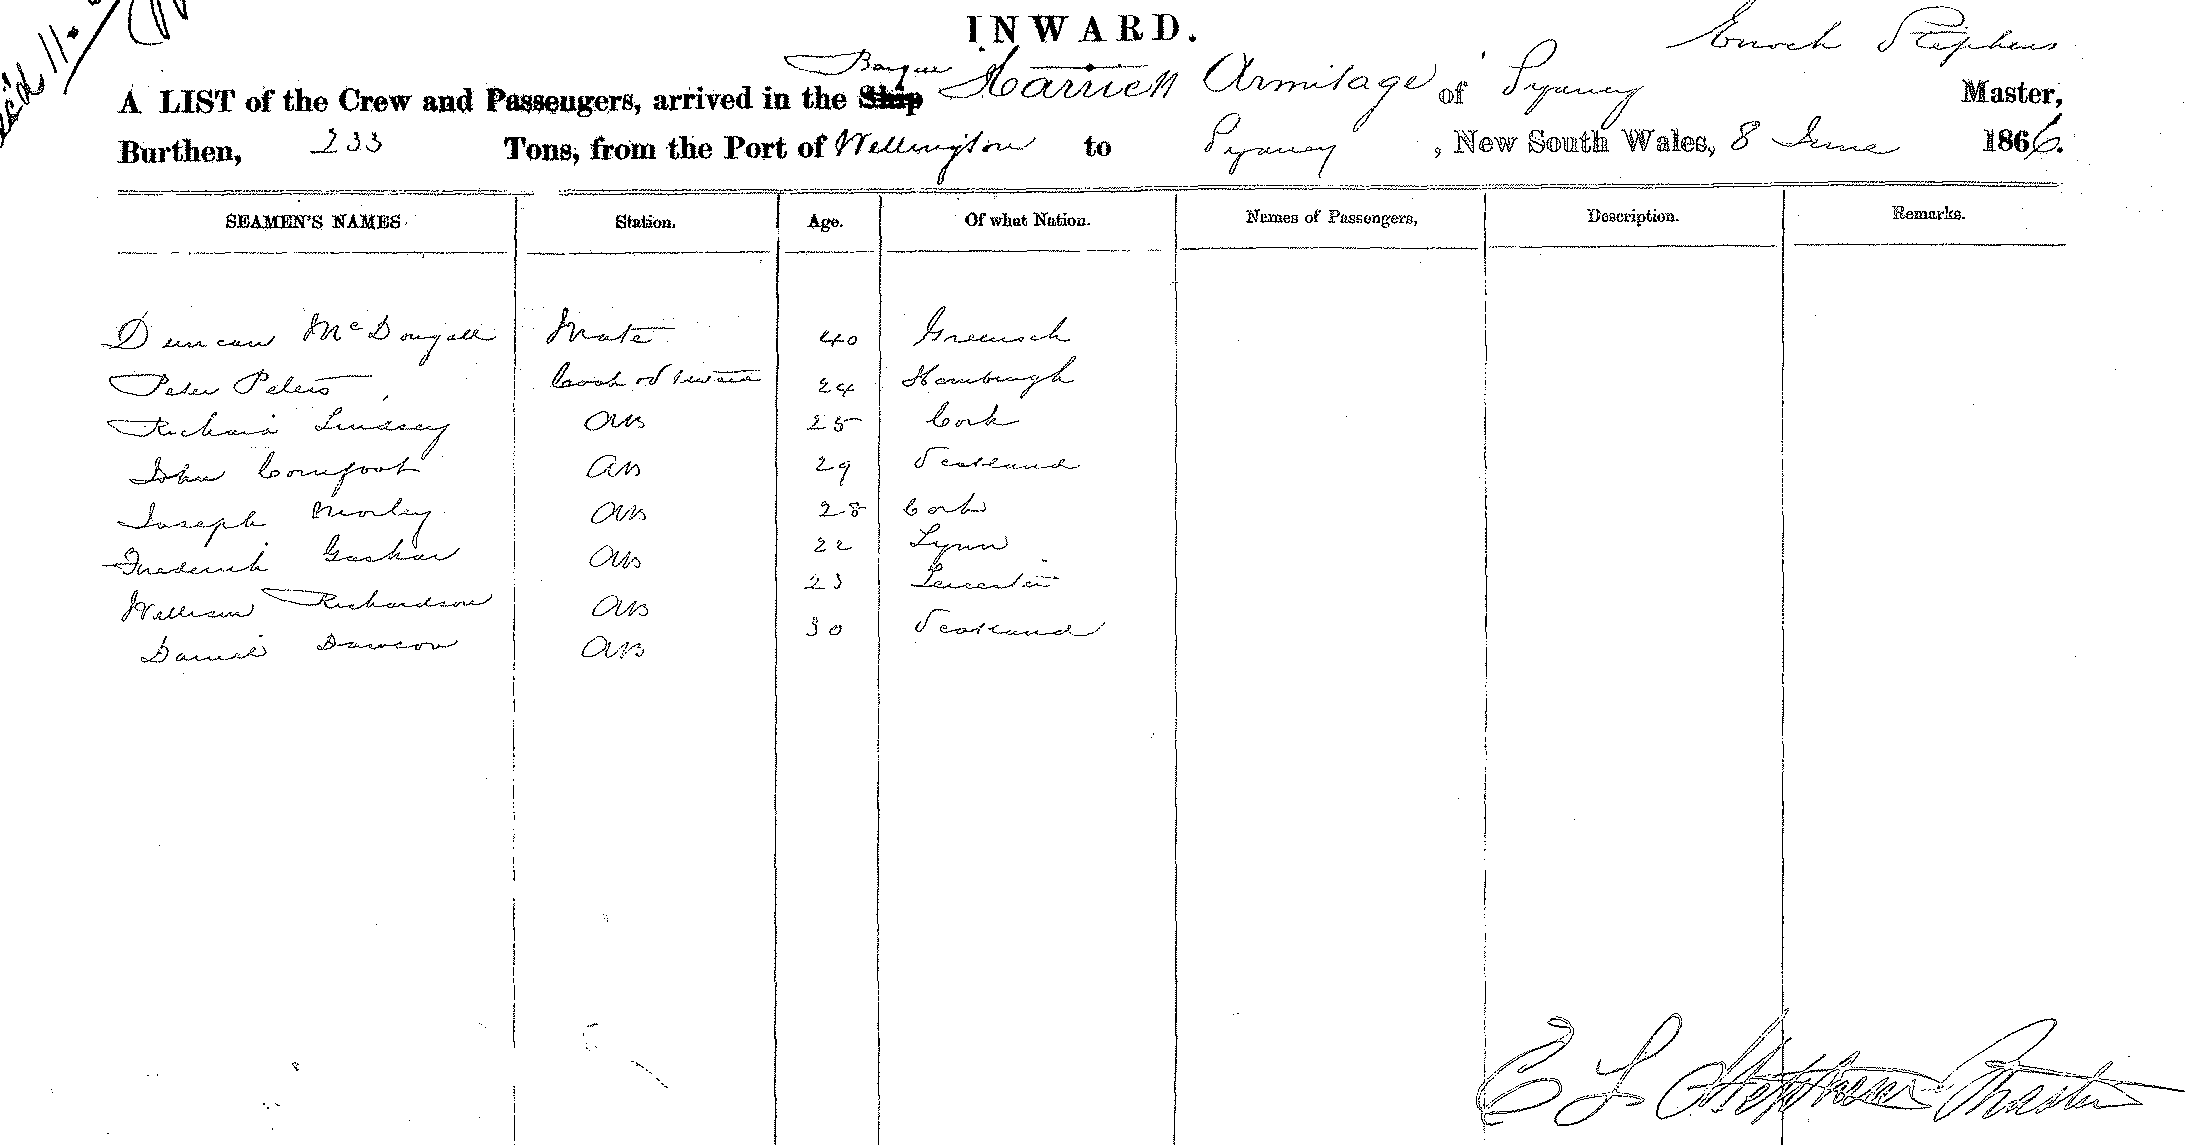 rec'd 11.
INWARD.
Enoch Stephens
A LIST of the Crew and Passengers, arrived in the Ship Barque Harriett Armitage of Sydney Master,
Burthen, 233 Tons, from the Port of Wellington to Sydney, New South Wales, 8 June 1866.
SEAMEN'S NAMES Station. Age. Of what Nation. Names of Passengers, Description. Remarks.
Duncan McDougall Mate 40 Greenock
Peter Peters Cook & Steward 24 Hamburgh
Richard Lindsey AB 25 Cork
John Cornfoot AB 29 Scotland
Joseph Morley AB 28 Cork
Frederick AB 22 Lynn
William Richardson AB 23 Leicester
Daniel Dawson AB 30 Scotland
E L Stephens Master